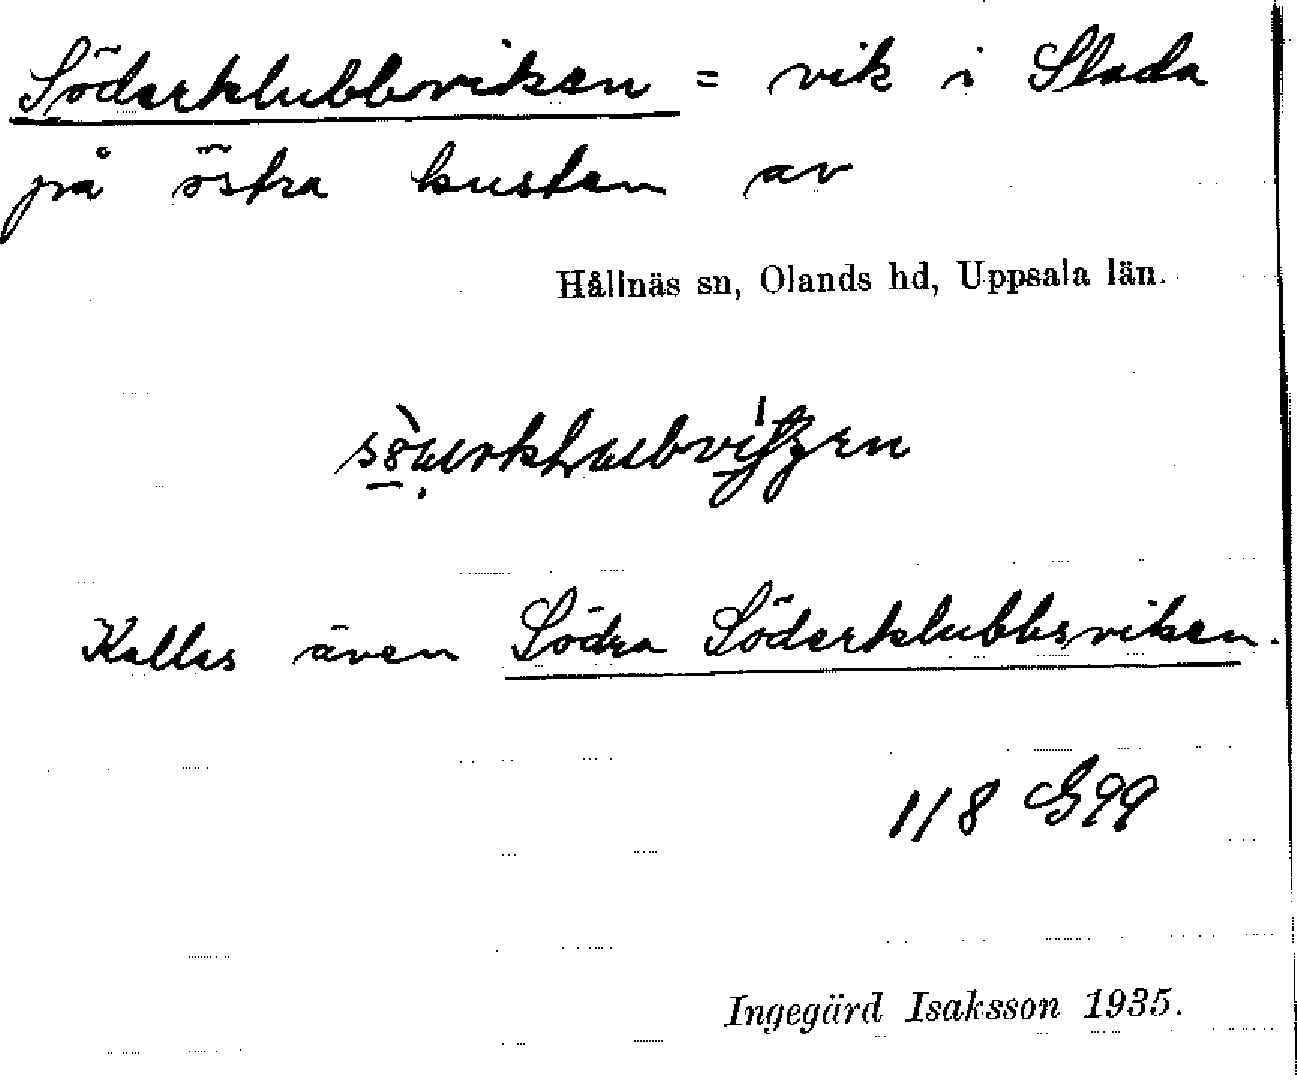 Söderklubbsviken = vik i Slada
på östra kusten av
Hållnäs sn, Olands hd, Uppsala län.
Kallas även Södra Söderklubbsviken.
118 G99
Ingegärd Isaksson 1935.